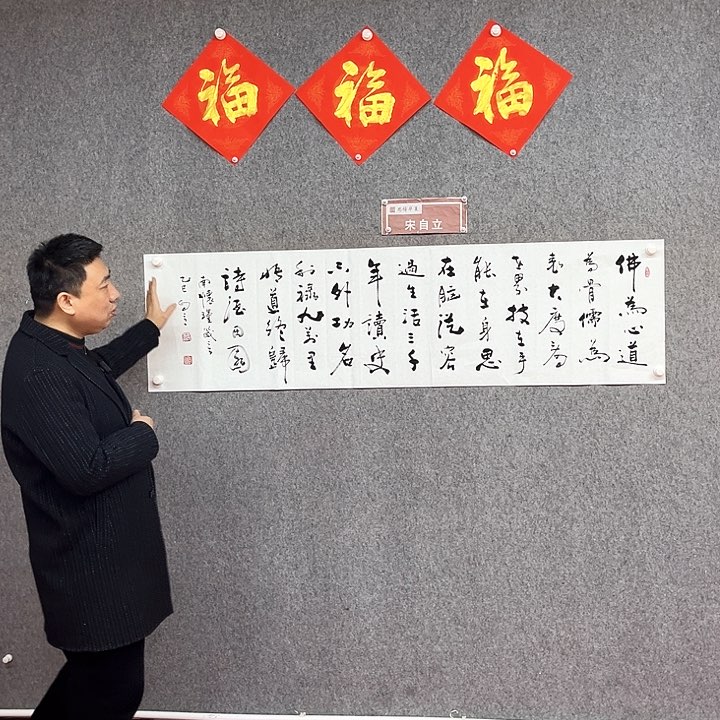 福
福
福
宋自立
佛為心道
為骨儒為
表大度看
世界技在手
能在身思
在脑從容
過生活三千
年讀史
不外功名
利祿九萬里
悟道終歸
詩酒田園
南懷瑾箴言
乙巳自立